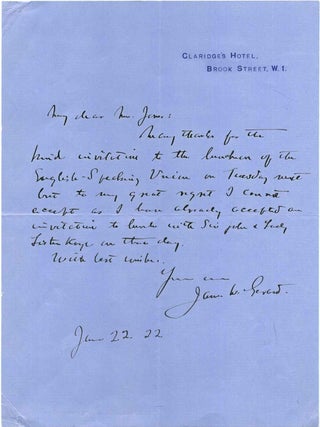 CLARIDGE'S HOTEL,
BROOK STREET, W.1.
My dear Mr. Jones:
Many thanks for the
kind invitation to the luncheon of the
English-Speaking Union on Tuesday next
but to my great regret I cannot
accept as I have already accepted an
invitation to lunch with Sir John & Lady
Lister Kaye on that day.
With best wishes.
Yours
James W. Gerard.
June 22. 22